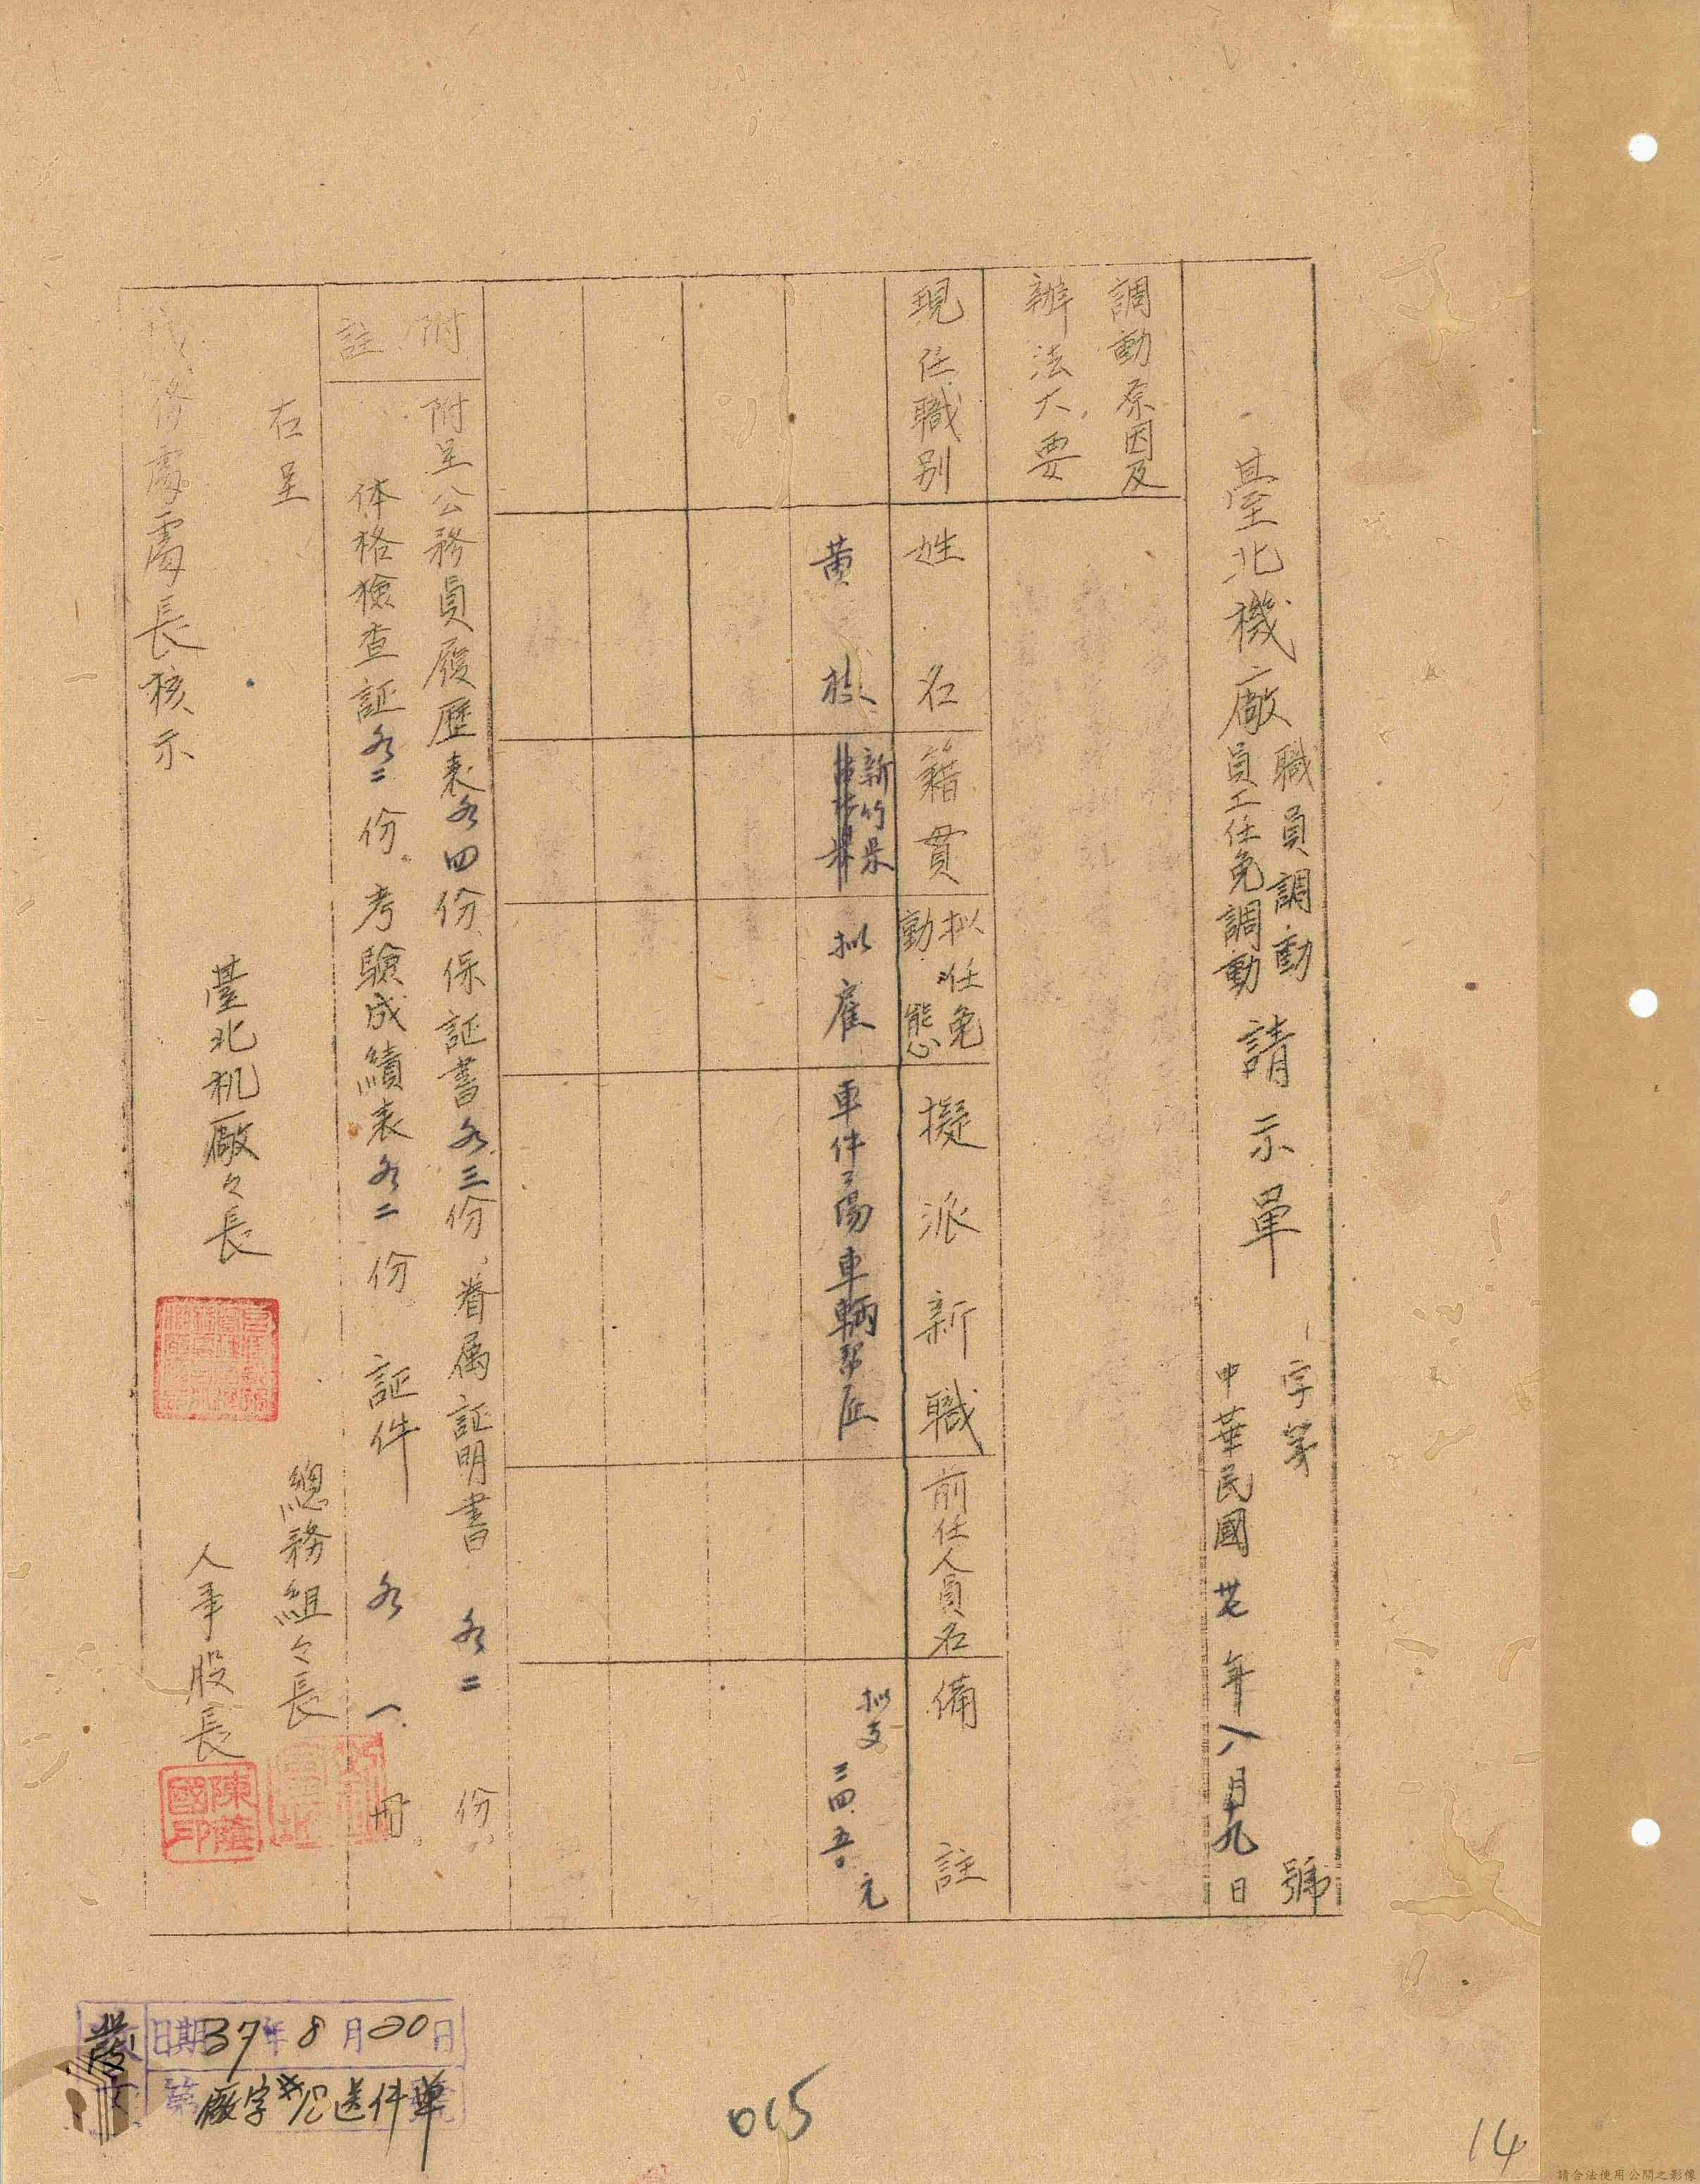 臺北機廠
職員調動
員工任免調動
請示單
字第 號
中華民國卅七年八月十九日
調動原因及
辦法大要
現任職別
姓名
籍貫
拟任免
動態
擬派新職
前任人員名
備註
黃
新竹県
拟雇
車件工場車輛幫匠
拟支
三四.五〇元
附註
附呈公務員履歷表各四份、保証書各三份、眷属証明書各二份、
体格檢查証各二份、考驗成績表各二份 証件各一冊。
右呈
處長核示
臺北机廠々長
總務組々長
人事股長
陳蔭國印
發文
日期37年8月20日
第廠字 送件單號
015
14
請合法使用公開之影像